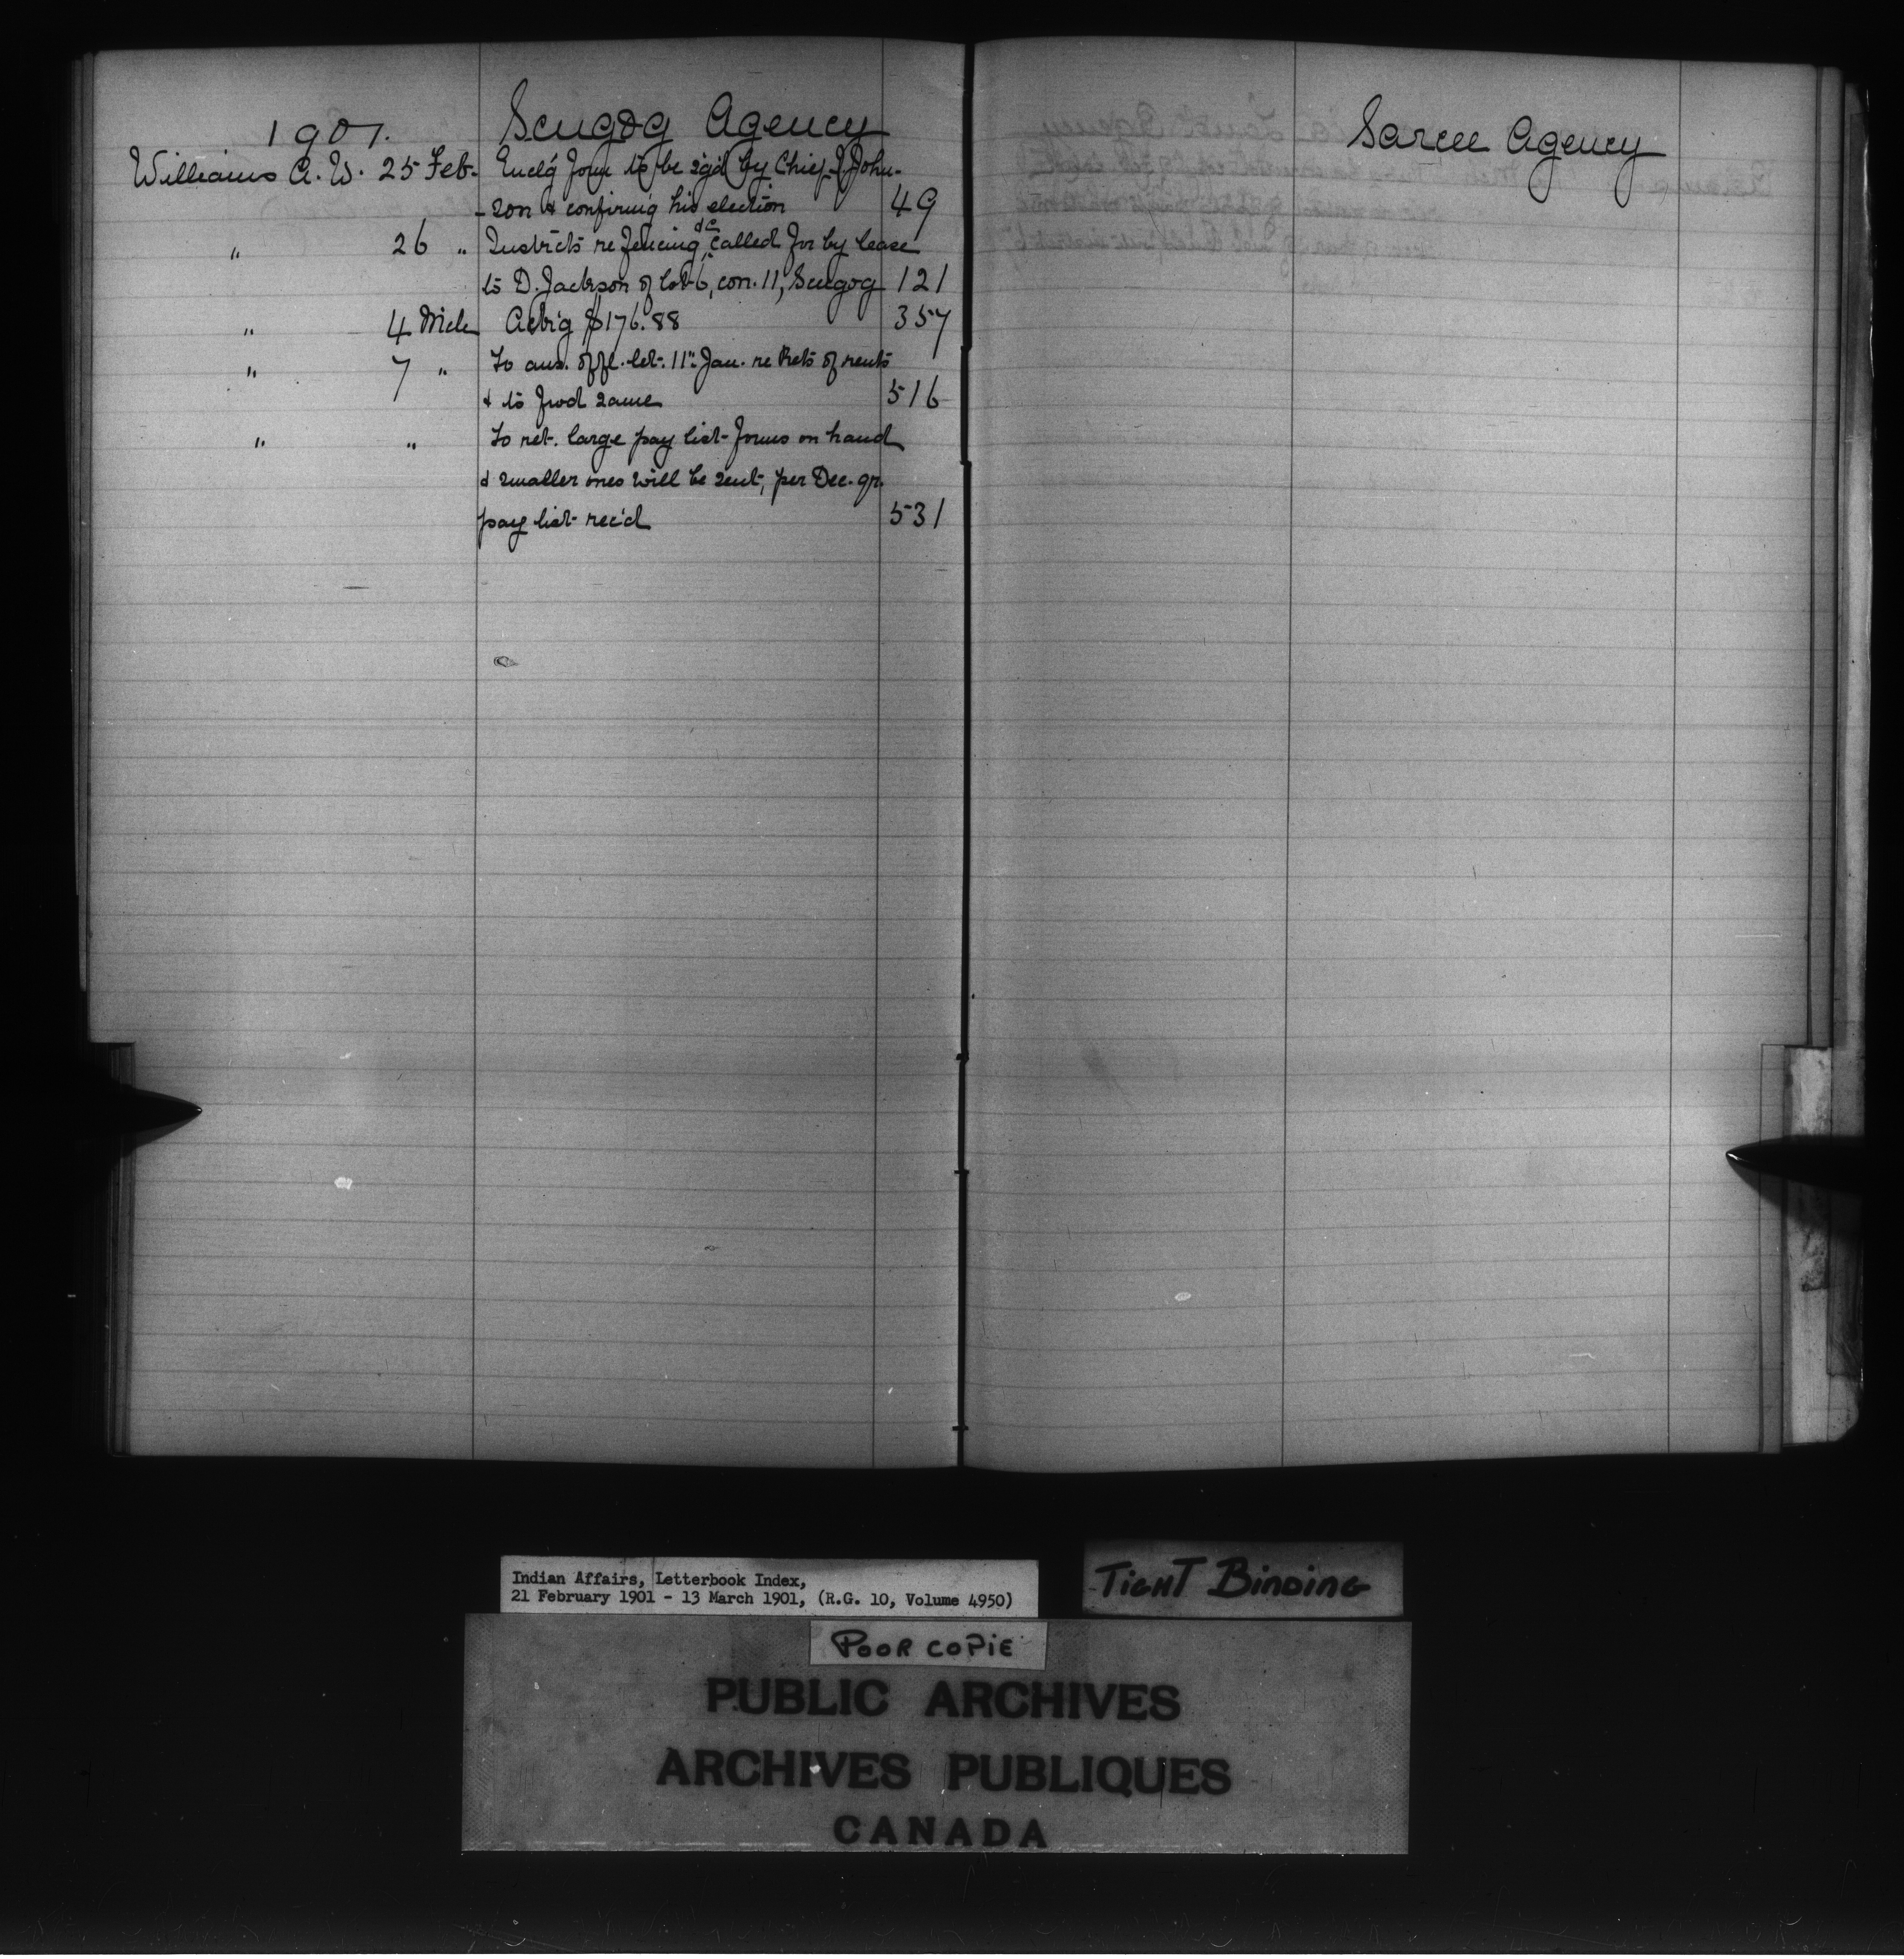 1901. Scugog Agency
Williams A. W. 25 Feb. Encl'g form to be sg'd by Chief J. John-
-son & confirm'g his election 49
" 26 " Instructs re fencing &c called for by lease
to D. Jackson of lot 6, con. 11, Scugog 121
" 4 Mch Ack'g $176.88 357
" 7 " To ans. off. let. 11" Jan. re Rets of rents
& to fwd same 516
" " To ret. large pay list forms on hand
& smaller ones will be sent, per Dec. qr.
pay list rec'd 531
Sarcee Agency
Indian Affairs, Letterbook Index,
21 February 1901 - 13 March 1901, (R.G. 10, Volume 4950)
TIGHT BINDING
POOR COPIE
PUBLIC ARCHIVES
ARCHIVES PUBLIQUES
CANADA